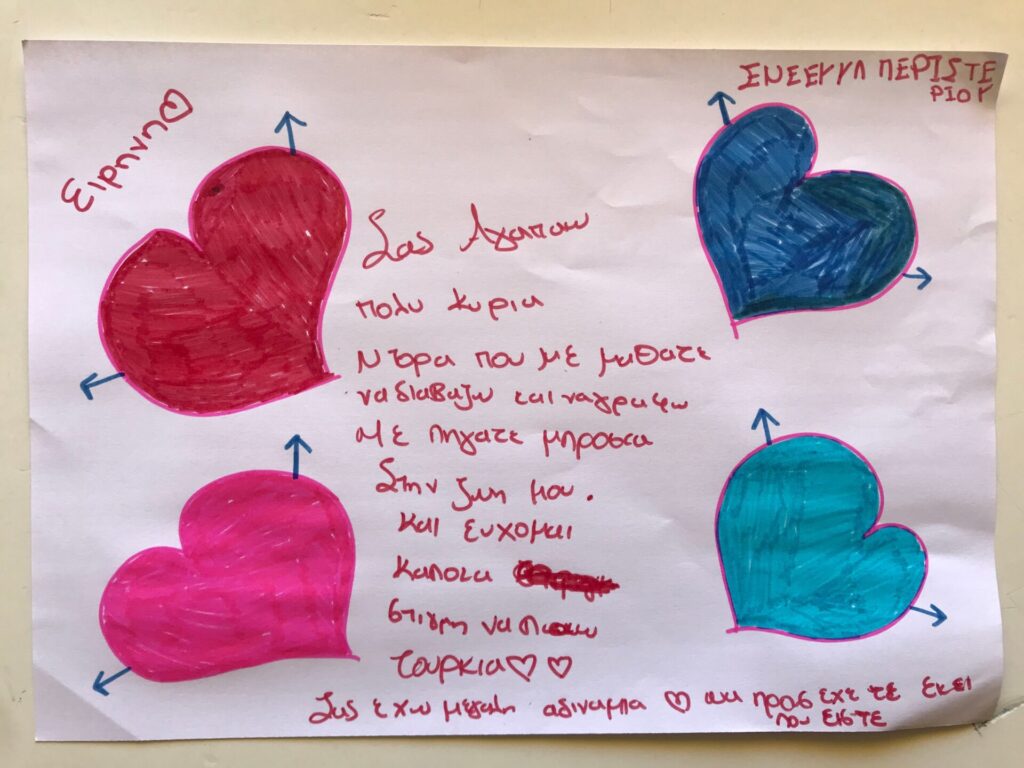 Ειρηνη♡
ΣΝΕΕΥΥΛ ΠΕΡΙΣΤΕ
ΡΙΟΥ
Σας Αγαπαω
πολυ κυρια
Ντορα που με μαθατε
να διαβαζω και να γραφω
Με πηγατε μπροστα
Στην ζωη μου.
Και ευχομαι
καποια
στιγμη να παω
Τουρκια♡♡
Σας εχω μεγαλη αδιναμια ♡ να προσεχετε εκει
που ειστε